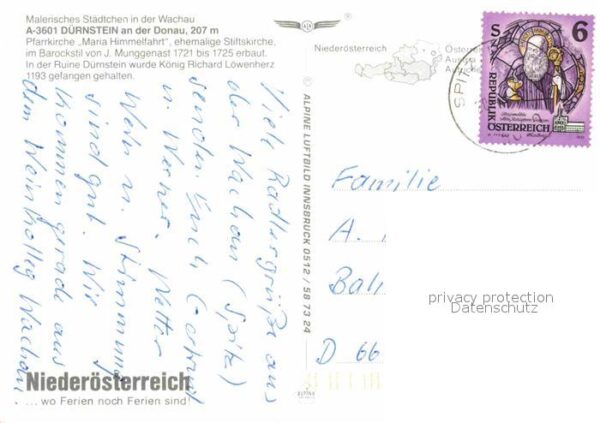 Malerisches Städtchen in der Wachau
A-3601 DÜRNSTEIN an der Donau, 207 m
Pfarrkirche „Maria Himmelfahrt", ehemalige Stiftskirche,
im Barockstil von J. Munggenast 1721 bis 1725 erbaut.
In der Ruine Dürnstein wurde König Richard Löwenherz
1193 gefangen gehalten.
Viele Radlergrüße aus
der Wachau (Spitz)
senden Euch
u. Werner. Wetter
Wein u. Stimmung
sind gut. Wir
kommen gerade aus
dem Weinkolleg Wachau.
Niederösterreich
... wo Ferien noch Ferien sind!
ALPINE LUFTBILD INNSBRUCK 0512 / 58 73 24
ALPINE
Niederösterreich
SPIT
S 6
REPUBLIK
ÖSTERREICH
Familie
A.
Bal
D 66
privacy protection
Datenschutz